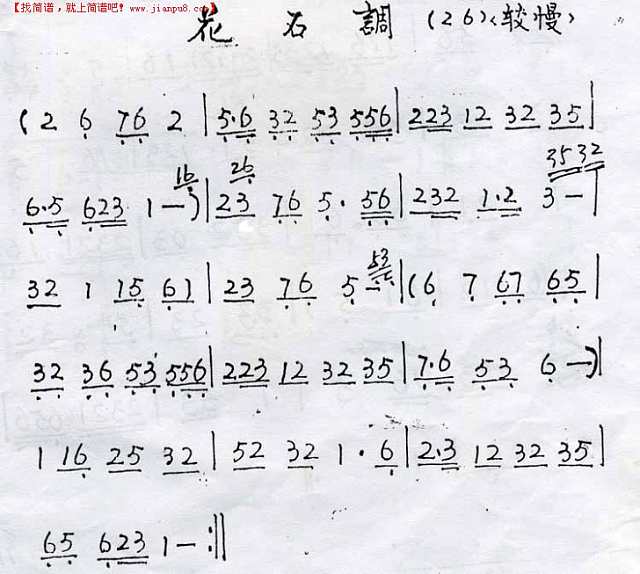 【找简谱，就上简谱吧! www.jianpu8.com】
花石調 (26)<较慢>
(2 6 76 2 | 5·6 32 53 556 | 223 12 32 35 |
16 26 3532
6·5 623 1 —) | 23 76 5· 56 | 232 1·2 3 — |
53
32 1 15 61 | 23 76 5 — | (6 7 67 65 |
32 36 53 556 | 223 12 32 35 | 7·6 53 6 —) |
1 16 25 32 | 52 32 1· 6 | 2·3 12 32 35 |
65 623 1 — :||